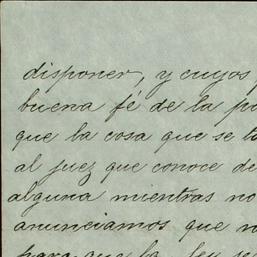 disponer, y cuyos
buena fé de la
que la cosa que se
al juez que conoce de
alguna mientras no
anunciamos que
para que la ley